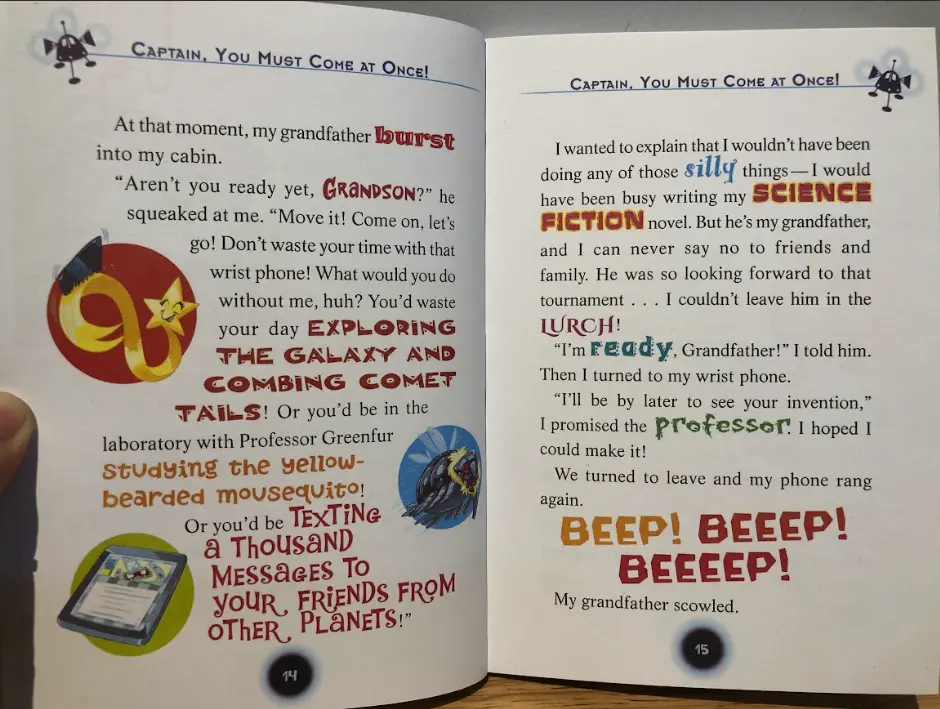 CAPTAIN, YOU MUST COME AT ONCE!
At that moment, my grandfather burst
into my cabin.
“Aren’t you ready yet, GRANDSON?” he
squeaked at me. “Move it! Come on, let’s
go! Don’t waste your time with that
wrist phone! What would you do
without me, huh? You’d waste
your day EXPLORING
THE GALAXY AND
COMBING COMET
TAILS! Or you’d be in the
laboratory with Professor Greenfur
studying the yellow-
bearded mousequito!
Or you’d be TEXTING
a THOUSAND
MESSAGES TO
YOUR FRIENDS FROM
OTHER PLANETS!”
14
CAPTAIN, YOU MUST COME AT ONCE!
I wanted to explain that I wouldn’t have been
doing any of those silly things — I would
have been busy writing my SCIENCE
FICTION novel. But he’s my grandfather,
and I can never say no to friends and
family. He was so looking forward to that
tournament . . . I couldn’t leave him in the
LURCH!
“I’m ready, Grandfather!” I told him.
Then I turned to my wrist phone.
“I’ll be by later to see your invention,”
I promised the professor. I hoped I
could make it!
We turned to leave and my phone rang
again.
BEEP! BEEEP!
BEEEEP!
My grandfather scowled.
15